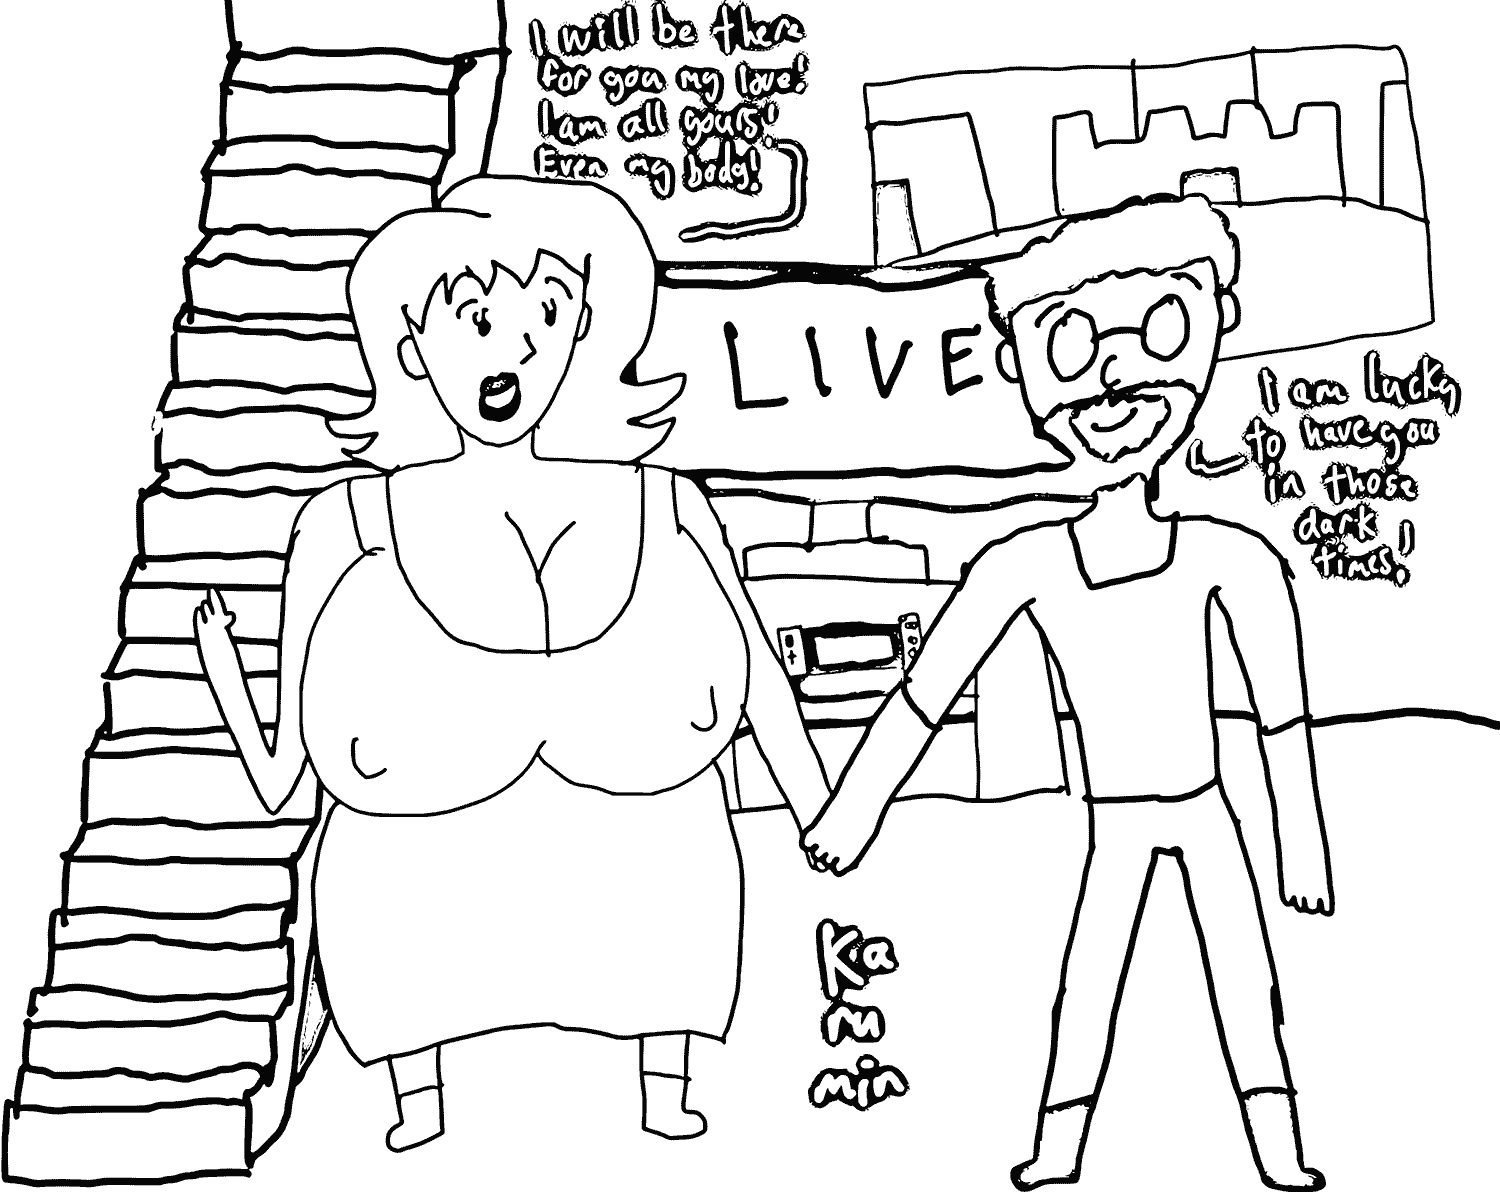 I will be there
for you my love!
I am all yours!
Even my body!
LIVE
I am lucky
to have you
in those
dark
times!
Ka
ru
min